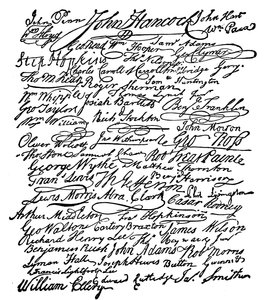 John Penn John Hancock John Hart
Wm Paca
Edward Wm Hooper Saml Adams
Step Hopkins
Charles Carroll of Carrollton
Roger Sherman Saml Huntington
Wm Whipple Benj Franklin
Geo Taylor Josiah Bartlett
Wm Williams Richd Stockton John Morton
Oliver Wolcott Jno Witherspoon Geo Ross
Thos Stone Samuel Chase Robt Treat Paine
George Wythe Matthew Thornton
Fran Lewis Th Jefferson Benj Harrison
Lewis Morris Abra Clark Caesar Rodney
Arthur Middleton Fras Hopkinson
Geo Walton Carter Braxton James Wilson
Richard Henry Lee Thos Heyward Junr
Benjamin Rush John Adams Robt Morris
Lyman Hall Joseph Hewes Button Gwinnett
Francis Lightfoot Lee
William Ellery Edward Rutledge Jas Smith